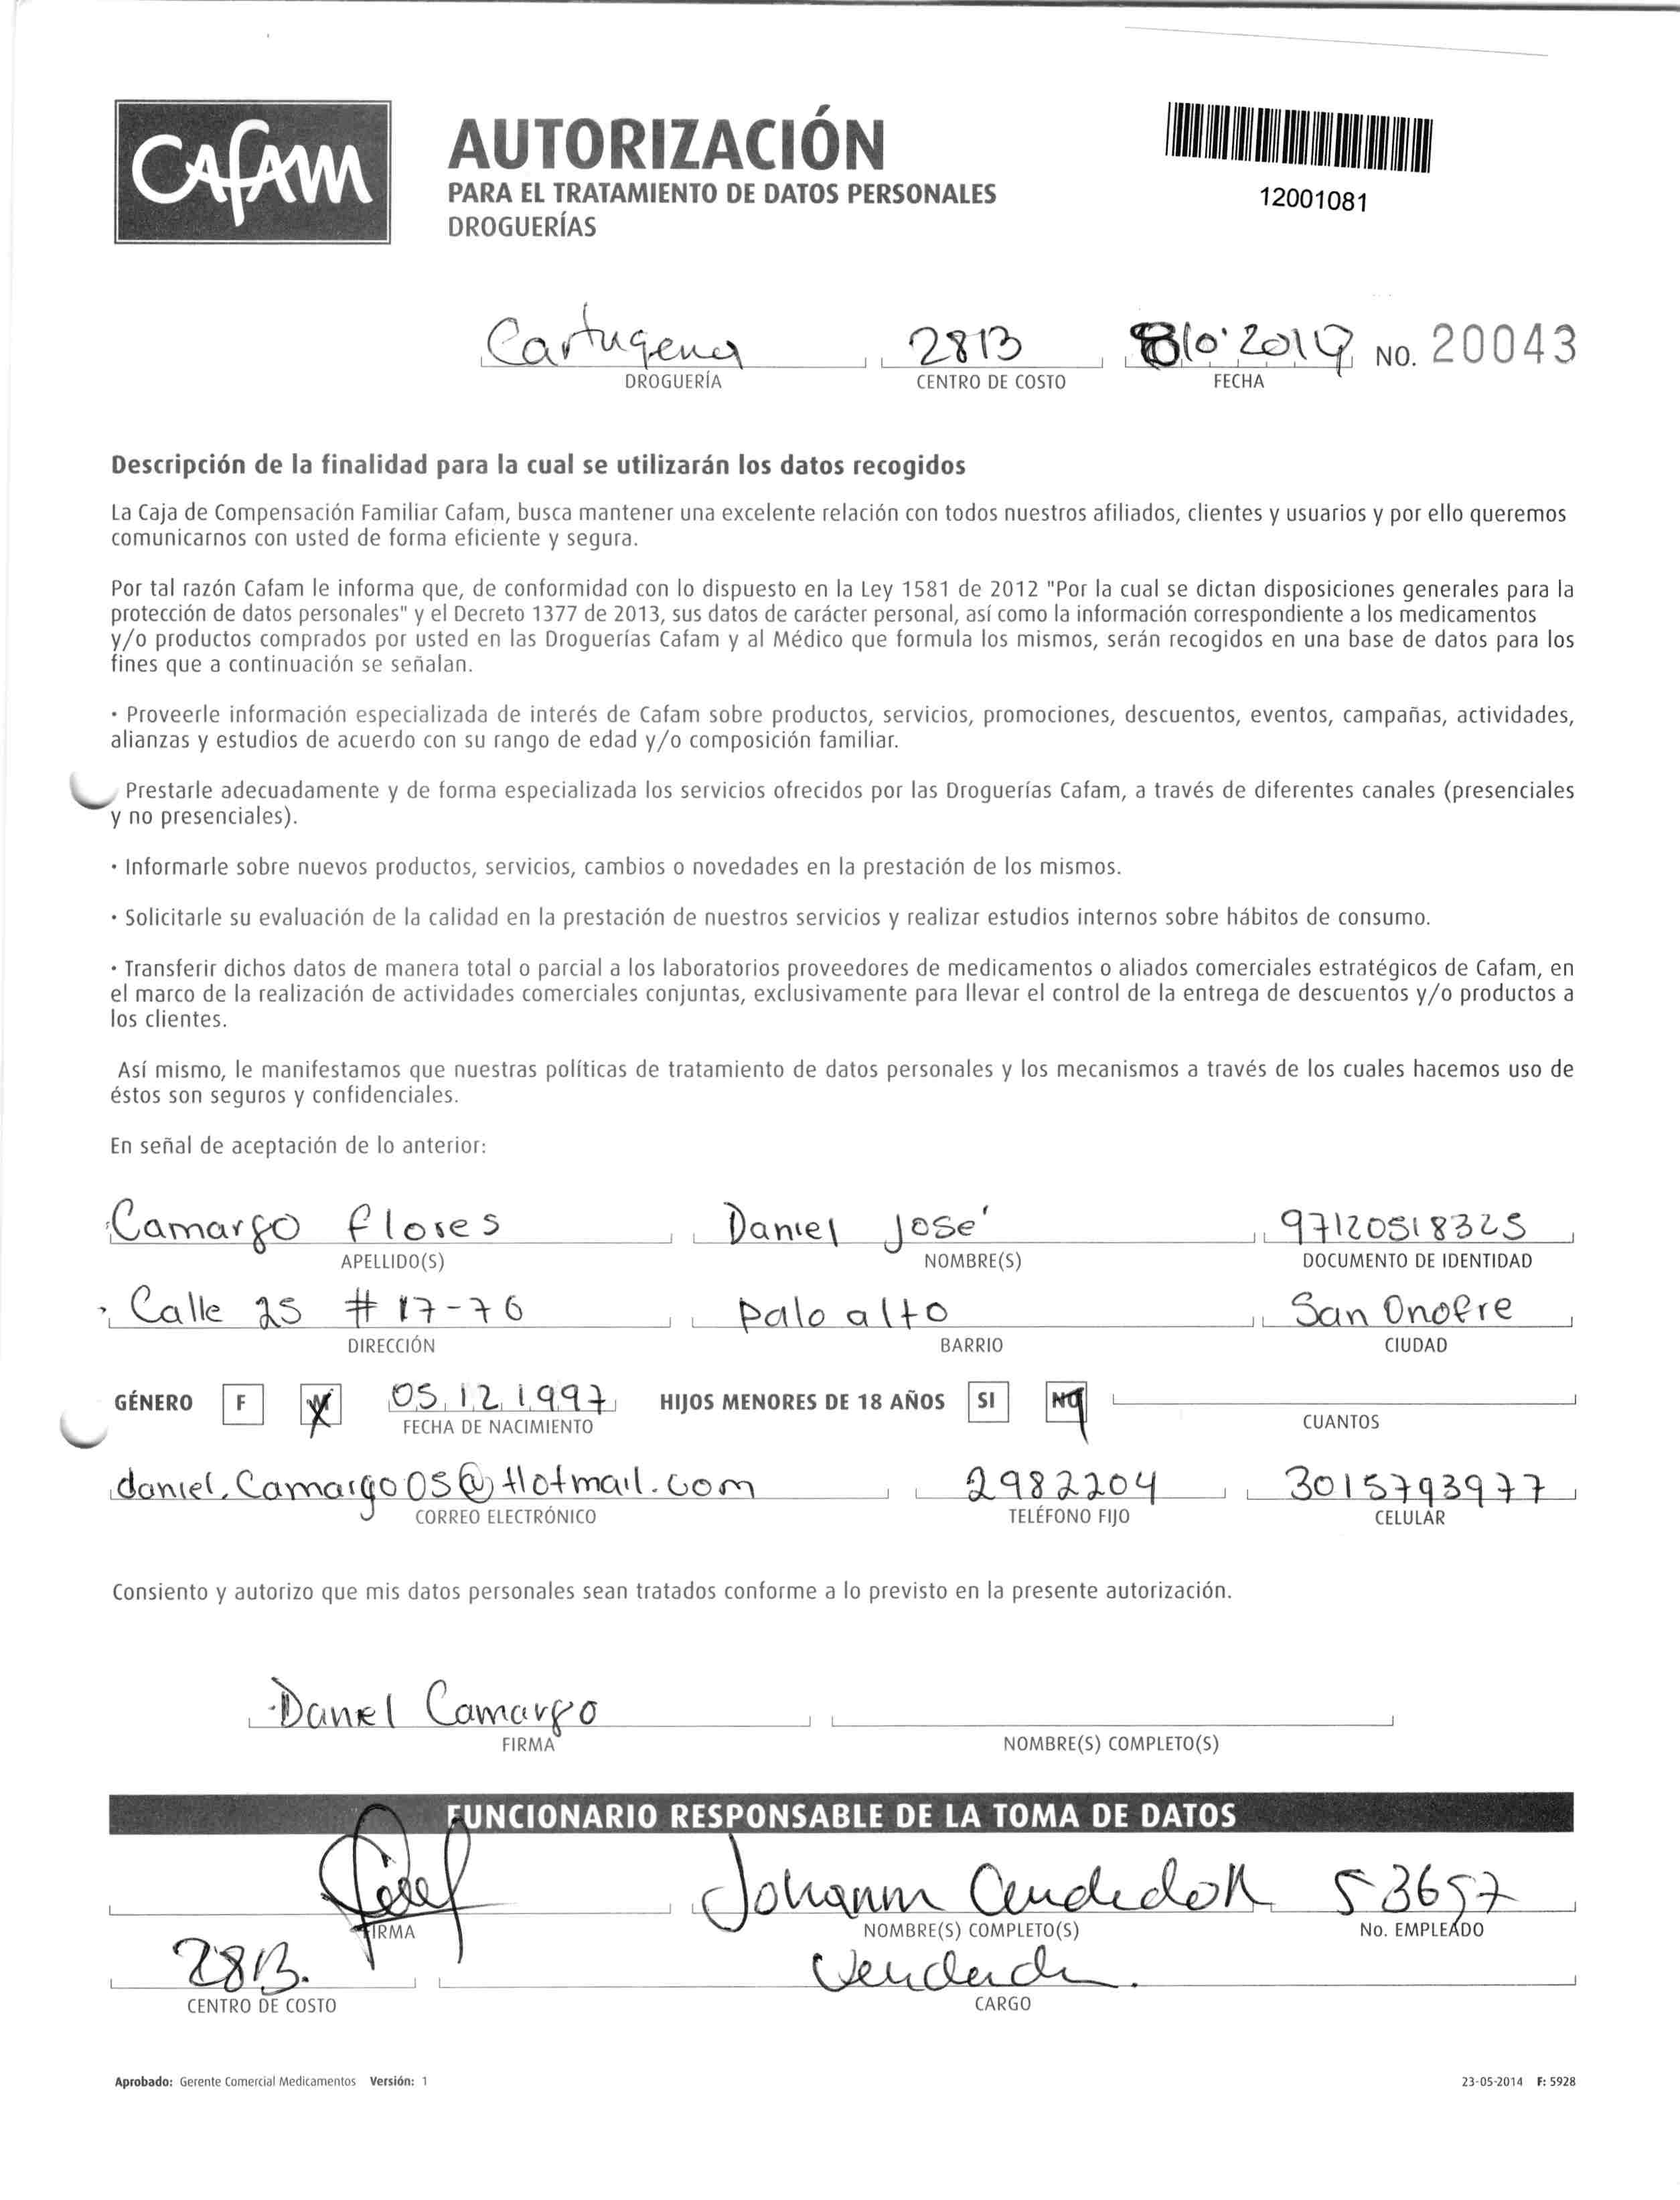 Cafam
AUTORIZACIÓN
PARA EL TRATAMIENTO DE DATOS PERSONALES
DROGUERÍAS
12001081
Cartagena 2813 2014 NO. 20043
DROGUERÍA CENTRO DE COSTO FECHA
Descripción de la finalidad para la cual se utilizarán los datos recogidos
La Caja de Compensación Familiar Cafam, busca mantener una excelente relación con todos nuestros afiliados, clientes y usuarios y por ello queremos
comunicarnos con usted de forma eficiente y segura.
Por tal razón Cafam le informa que, de conformidad con lo dispuesto en la Ley 1581 de 2012 "Por la cual se dictan disposiciones generales para la
protección de datos personales" y el Decreto 1377 de 2013, sus datos de carácter personal, así como la información correspondiente a los medicamentos
y/o productos comprados por usted en las Droguerías Cafam y al Médico que formula los mismos, serán recogidos en una base de datos para los
fines que a continuación se señalan.
• Proveerle información especializada de interés de Cafam sobre productos, servicios, promociones, descuentos, eventos, campañas, actividades,
alianzas y estudios de acuerdo con su rango de edad y/o composición familiar.
Prestarle adecuadamente y de forma especializada los servicios ofrecidos por las Droguerías Cafam, a través de diferentes canales (presenciales
y no presenciales).
• Informarle sobre nuevos productos, servicios, cambios o novedades en la prestación de los mismos.
• Solicitarle su evaluación de la calidad en la prestación de nuestros servicios y realizar estudios internos sobre hábitos de consumo.
• Transferir dichos datos de manera total o parcial a los laboratorios proveedores de medicamentos o aliados comerciales estratégicos de Cafam, en
el marco de la realización de actividades comerciales conjuntas, exclusivamente para llevar el control de la entrega de descuentos y/o productos a
los clientes.
Así mismo, le manifestamos que nuestras políticas de tratamiento de datos personales y los mecanismos a través de los cuales hacemos uso de
éstos son seguros y confidenciales.
En señal de aceptación de lo anterior:
Camargo flores Daniel José 97120518325
APELLIDO(S) NOMBRE(S) DOCUMENTO DE IDENTIDAD
Calle 25 # 17-76 palo alto San Onofre
DIRECCIÓN BARRIO CIUDAD
GÉNERO F M 05 12 1997 HIJOS MENORES DE 18 AÑOS SI NO
FECHA DE NACIMIENTO CUANTOS
daniel.Camargo05@Hotmail.com 2982204 3015793977
CORREO ELECTRÓNICO TELÉFONO FIJO CELULAR
Consiento y autorizo que mis datos personales sean tratados conforme a lo previsto en la presente autorización.
Daniel Camargo
FIRMA NOMBRE(S) COMPLETO(S)
FUNCIONARIO RESPONSABLE DE LA TOMA DE DATOS
Johann 53657
FIRMA NOMBRE(S) COMPLETO(S) No. EMPLEADO
2813.
CENTRO DE COSTO CARGO
Aprobado: Gerente Comercial Medicamentos Versión: 1 23-05-2014 F: 5928